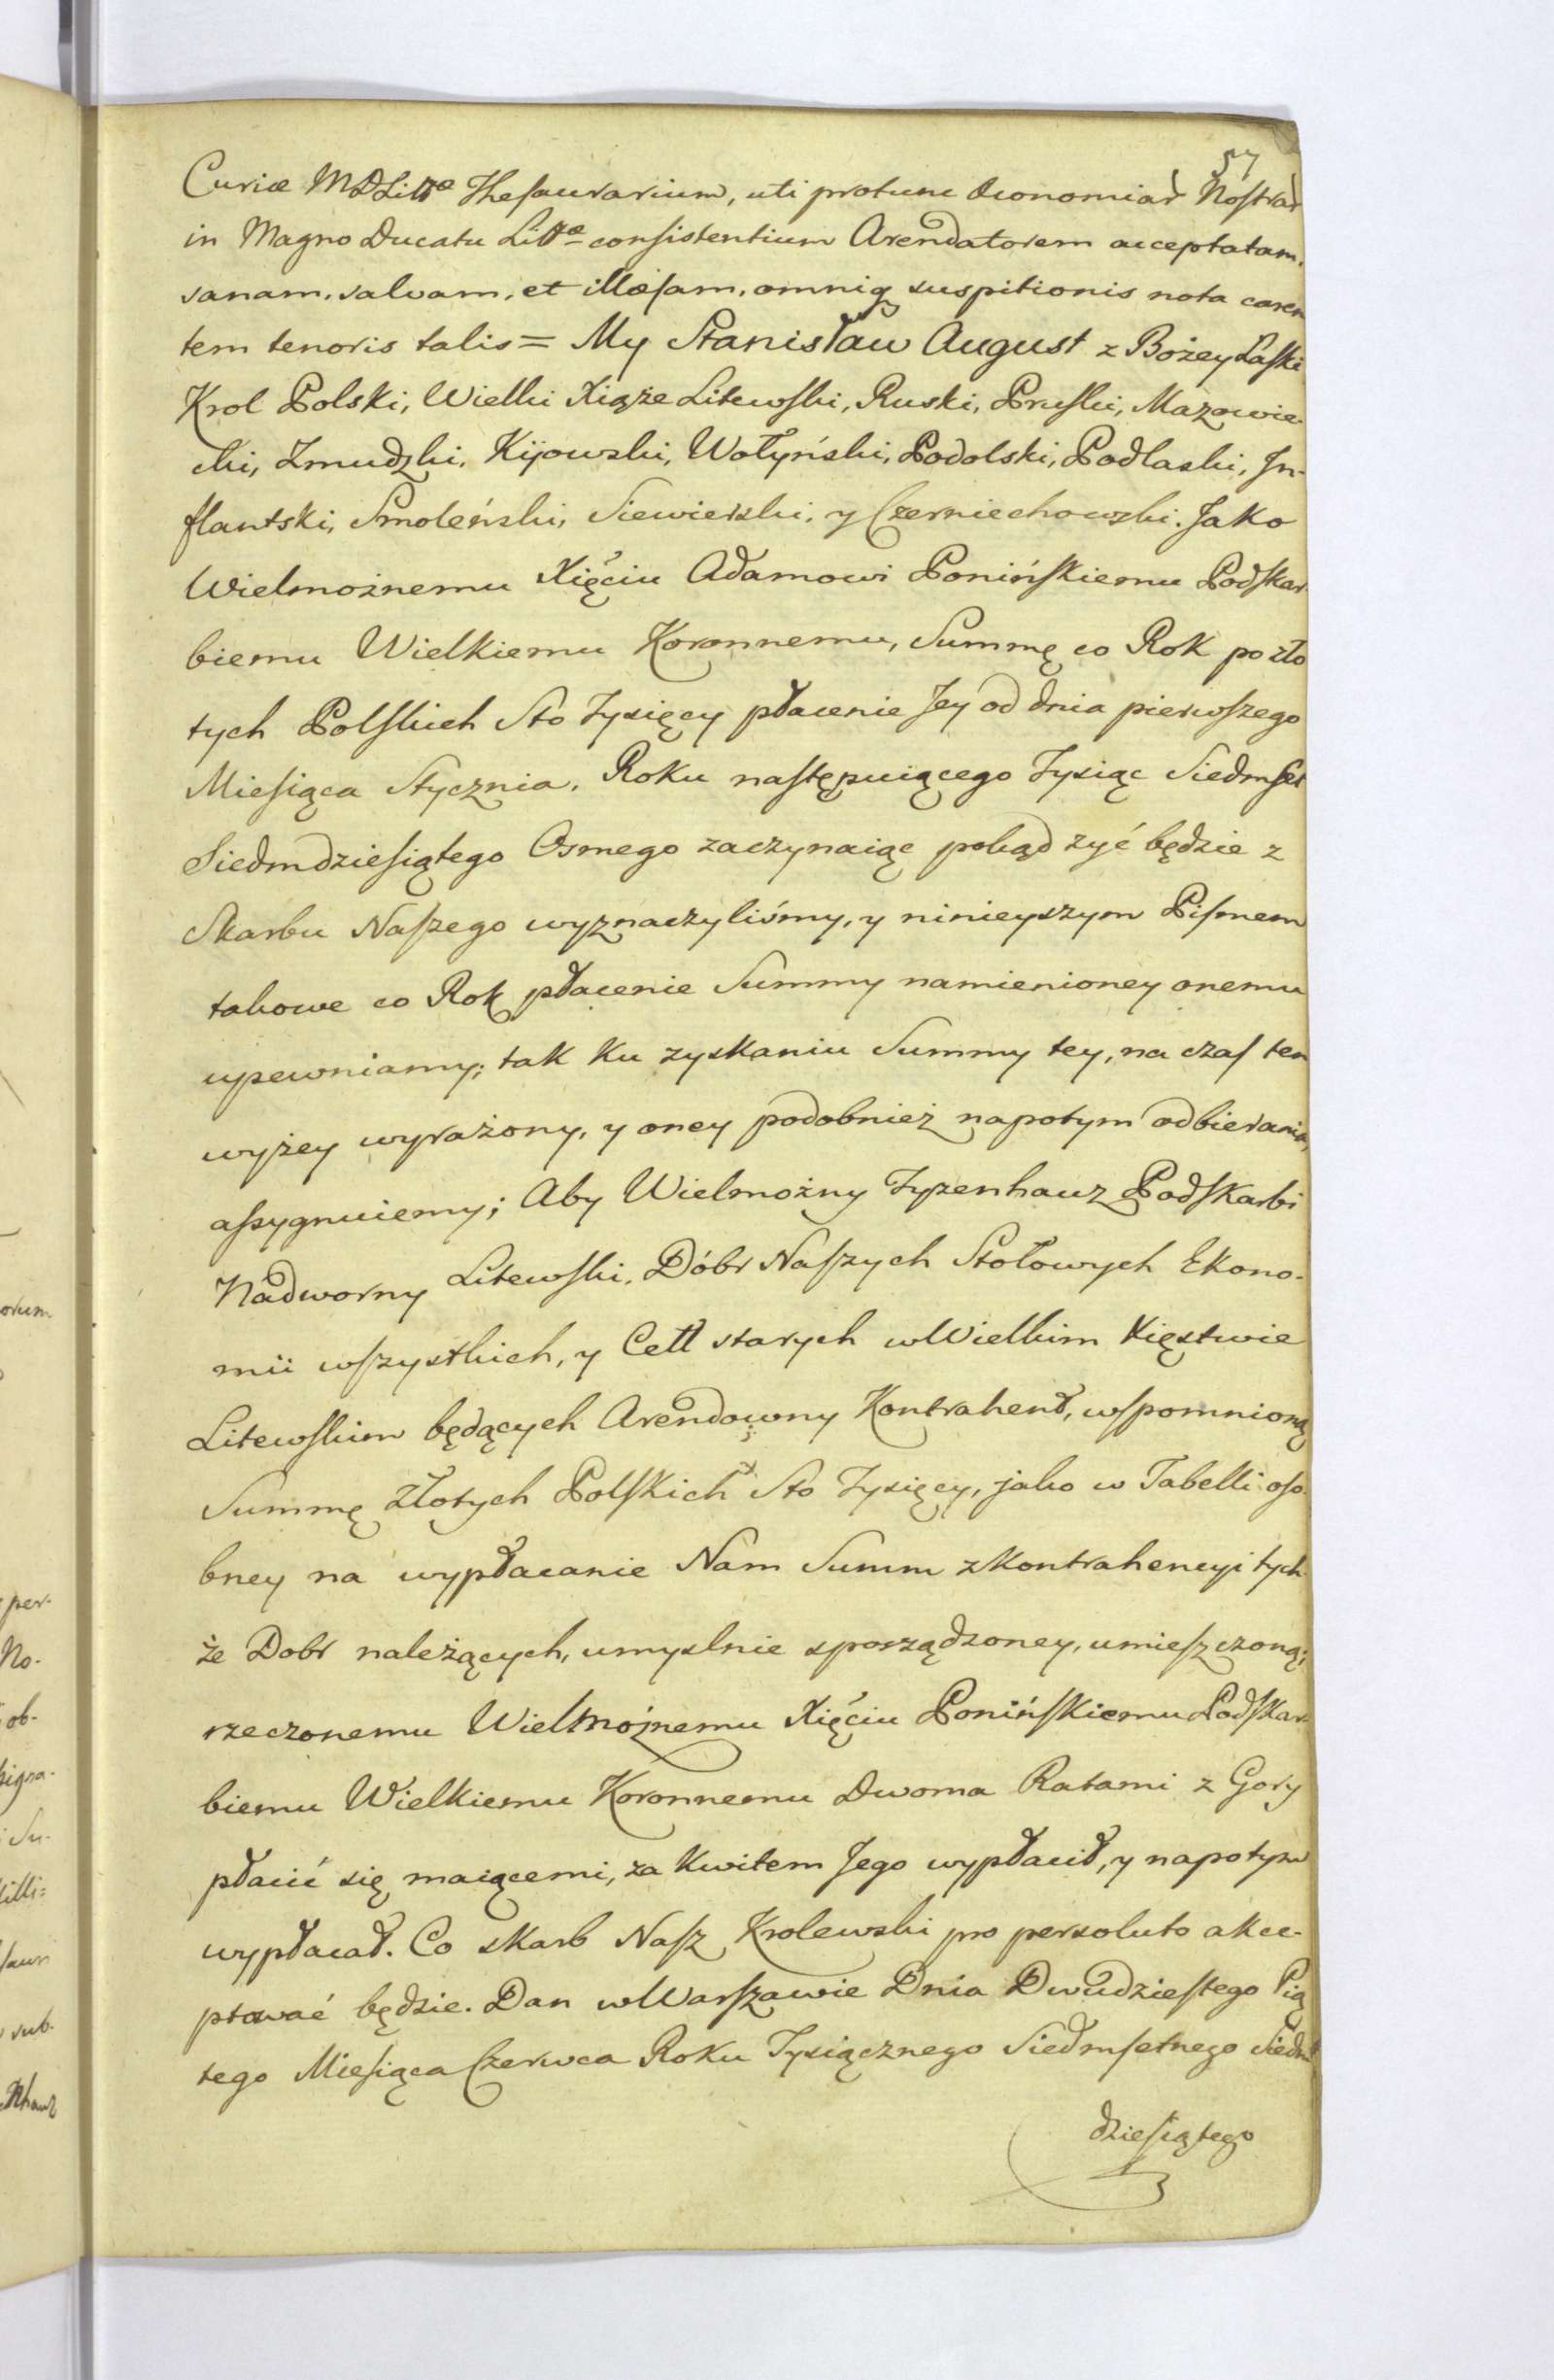 57
Curiæ MDLittæ Thesaurarium, uti protunc Œconomiar Nostrar
in Magno Ducatu Littæ consistentium Arendatorem acceptatam.
sanam, salvam, et illæsam, omniq suspitionis nota caren
tem tenoris talis = My Stanisław August z Bożey Łaski
Krol Polski, Wielki Xiąże Litewski, Ruski, Pruski, Mazowie-
cki, Zmudzki, Kijowski, Wołyński, Podolski, Podlaski, In-
flantski, Smoleński, Siewierski, y Czerniechowski. Jako
Wielmożnemu Xięciu Adamowi Ponińskiemu Podskar-
biemu Wielkiemu Koronnemu, Summę co Rok po zło
tych Polskich Sto Tysięcy płacenie Jey od dnia pierwszego
Miesiąca Stycznia, Roku następuiącego Tysiąc Siedmset
Siedmdziesiątego Osmego zaczynaiąc pokąd żyć będzie z
Skarbu Naszego wyznaczyliśmy, y ninieyszym Pismem
takowe co Rok płacenie Summy namienioney onemu
upewniamy; tak ku zyskaniu Summy tey, na czas ten
wyżey wyrażony, y oney podobnież napotym odbierania,
assygnuiemy; Aby Wielmożny Tyzenhauz Podskarbi
Nadworny Litewski, Dóbr Naszych Stołowych Ekono-
mii wszystkich, y Cell starych w Wielkim Xięstwie
Litewskim będących Arendowny Kontrahent, wspomnioną
Summę złotych Polskich Sto Tysięcy, jako w Tabelli oso-
bney na wypłacanie Nam Summ z Kontrahencyi tych
że Dobr należących, umyslnie sporządzoney, umieszczoną;
rzeczonemu Wielmożnemu Xięciu Ponińskiemu Podskar-
biemu Wielkiemu Koronnemu Dwoma Ratami z Gory
płacić się maiącemi, za Kwitem Jego wypłacił, y napotym
wypłacał. Co skarb Nasz Krolewski pro persoluto akce-
ptować będzie. Dan w Warszawie Dnia Dwudziestego Pią
tego Miesiąca Czerwca Roku Tysiącznego Siedmsetnego Siedm
dziesiątego